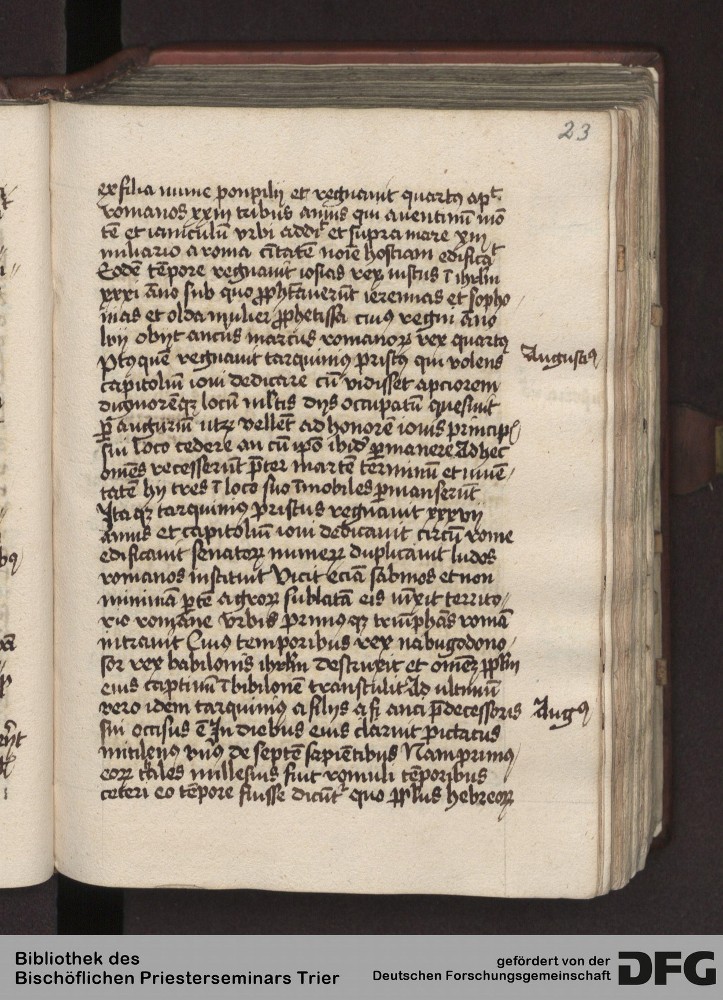 23
ex filia nume ponpilij et regnauit quartꝰ apᵗ
romanos xxiij tribus annis qui auentinū mō
tē et ianiculū vrbi addiᵗ et supra mare xvj
miliario a roma ciuitatē noīe hostiam edificaᵗ
Eodē tēpore regnauit iosias rex iustus ī ihrlm
xxxi āno sub quo ꝓphetauerūt ieremias et sopho
nias et olda mulier ꝓphetissa cuiꝰ regni āno
lvij obijt ancus marcus romanoꝝ rex quartꝰ
Pꝰ quē regnauit tarquiniꝰ pristꝰ qui volens
Augustinꝰ
capitoliū ioui dedicare cū vidisset apciorem
dignorēqꝫ locū ml̄tis dijs occupatū quesiuit
ꝑ auguriū utꝝ vellēt ad honorē iouis principis
sui loco cedere an cū ipō ibid ꝑmanere Ad hec
omēs recesserūt pter martē terminū et iuuē
tatē hij tres ī loco suo īmobiles ꝑmanserūt
Itaqꝫ tarquiniꝰ pristus regnauit xxxvij
annis et capitoliū ioui dedicauit circū rome
edificauit senatoꝝ numeꝝ duplicauit ludos
romanos instituit Vicit eciā sabinos et non
minimā ꝑtē agroꝝ sublatā eis iūxit territo
rio romane vrbis primusqꝫ triūphās romā
intrauit Cuiꝰ temporibus rex nabugodono
sor rex babilonis ihrlm destruxit et omēꝫ ppl̄m
eius captiuū ī bibilonē transtulit Ad ultimū
vero idem tarquiniꝰ a filijs a fi anci p̄decessoris
Augꝰ
sui occisus ē In diebus eius claruit pictatus
mitilenꝰ vnꝰ de septē sapientibus Nam primꝰ
eoꝝ thales millesius fuit romuli tēporibus
ceteri eo tēpore fuisse dicūtʳ quo ppl̄us hebreoꝝ
Bibliothek des
Bischöflichen Priesterseminars Trier
gefördert von der
Deutschen Forschungsgemeinschaft
DFG